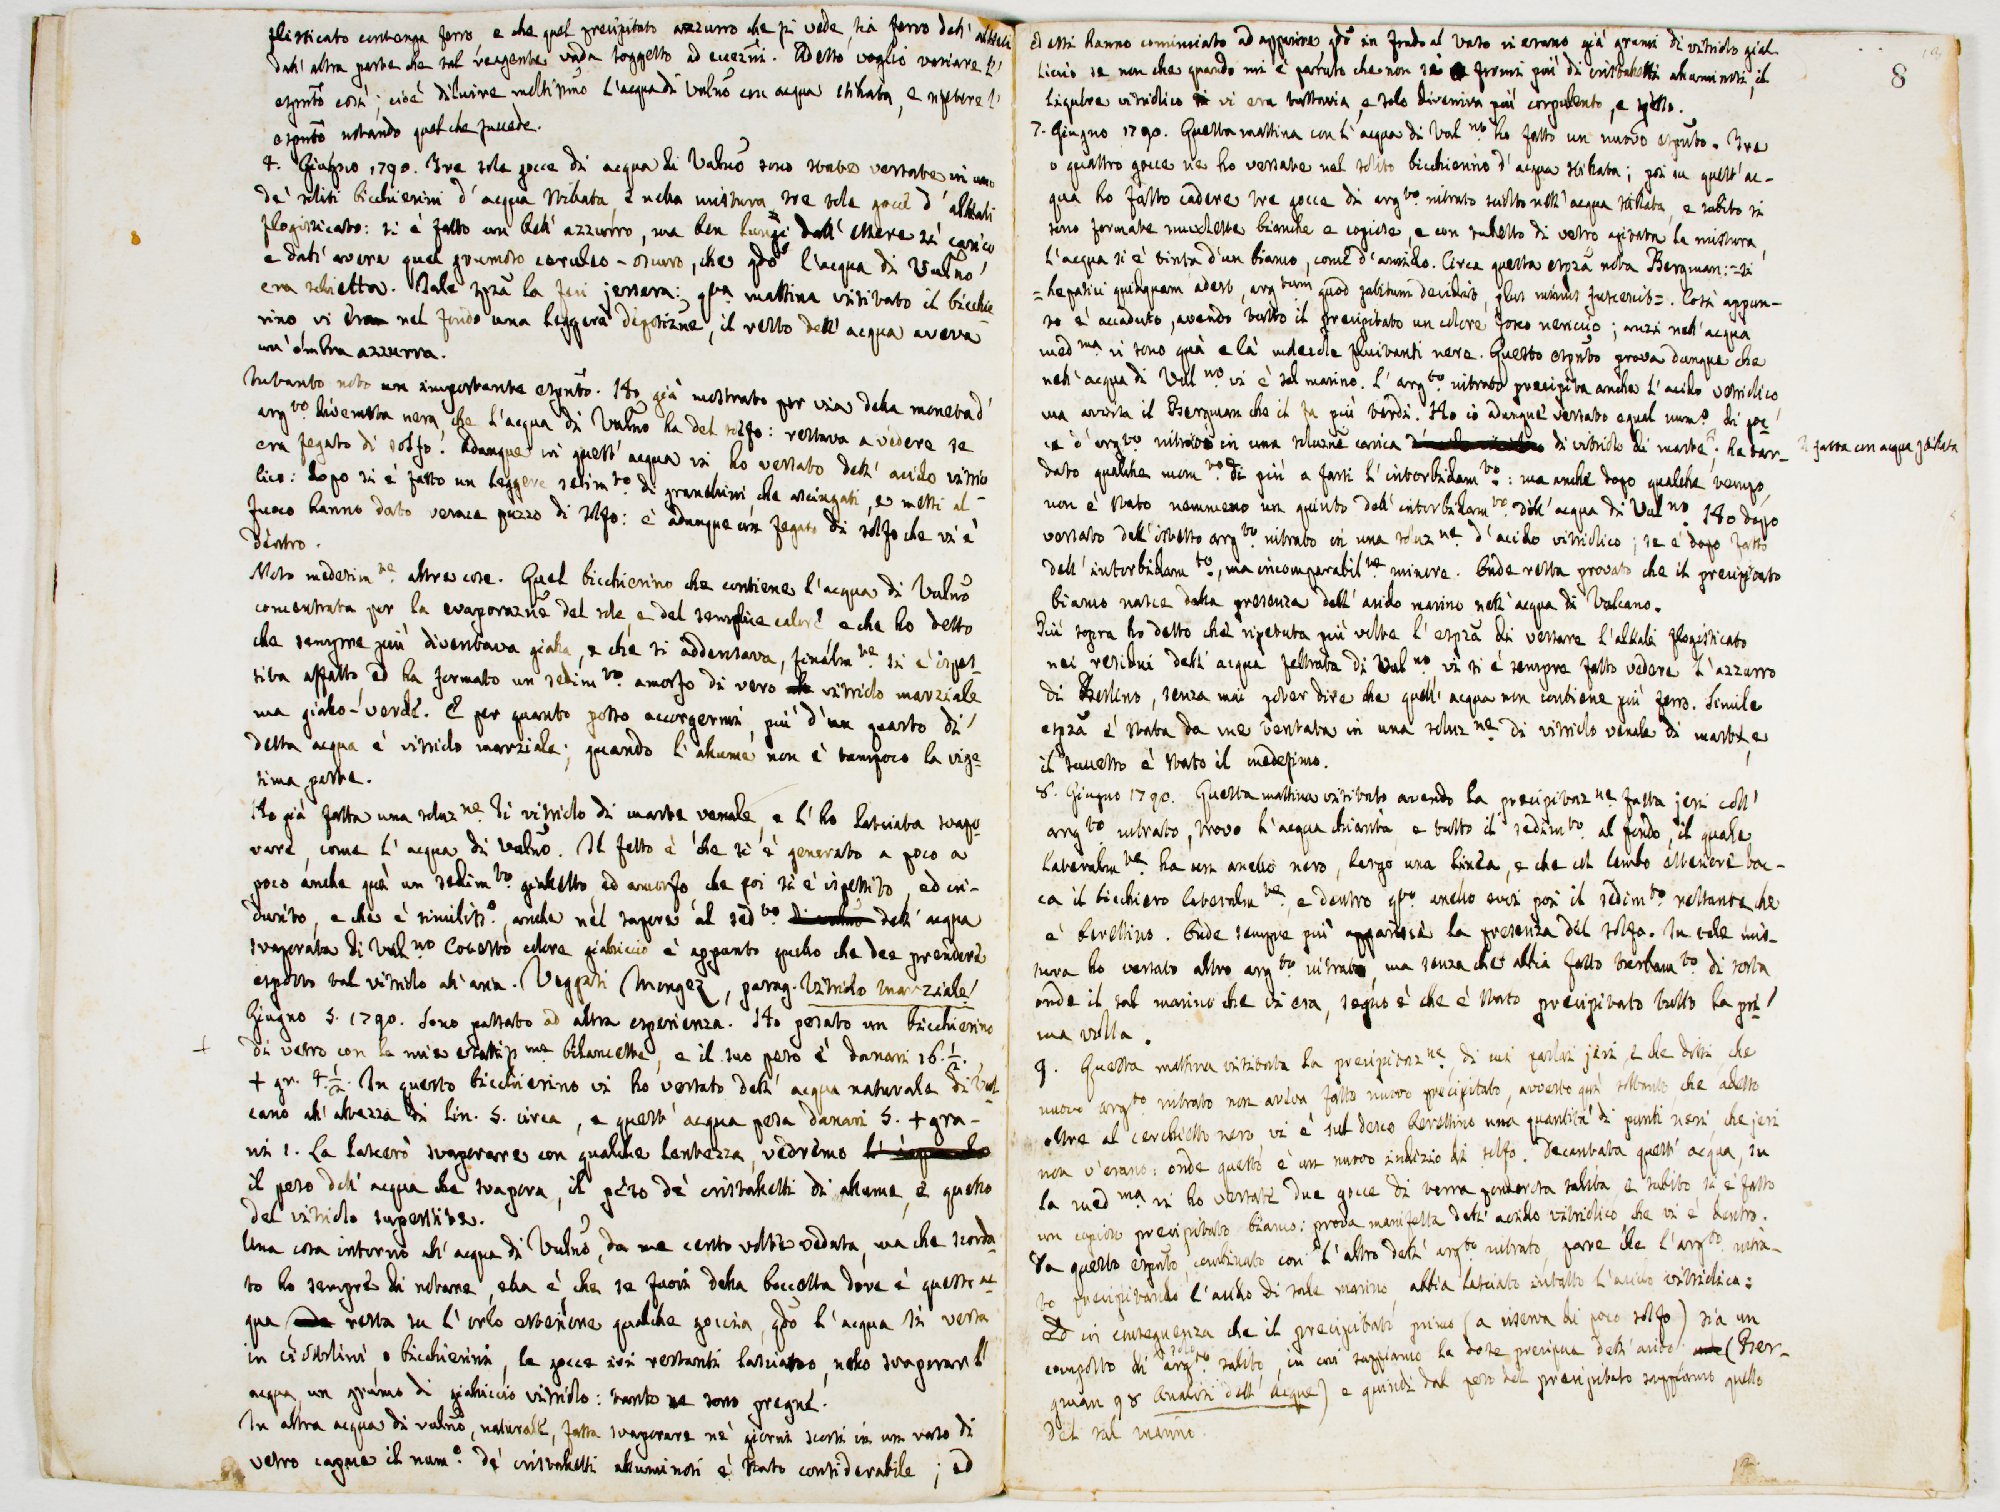 flisticato contenga ferro e che quel precipitato azzurro che si vede, sia ferro dell' alkali
dall' altra parte che tal reagente vada soggetto ad eccezñi. Adesso voglio variare l'
esp̃to così; cioè diluire moltissimo l'acqua di Vulnõ con acqua stillata, e ripetere l'
esp̃to notando quel che succede.
4. Giugno 1790. Tre sole gocce di acqua di Vulnõ sono state versate in uno
de' soliti bicchierini d' acqua stillata e nella mistura tre sole gocce d' alkali
flogisticato: si è fatto un bell' azzurro, ma ben lungi dall' essere sì carico
e dall' avere quel grumoso ceruleo-oscuro, che qdo l'acqua di Vulnõ
era schietta. Tale sp̃za la feci jersera: qta mattina visitato il bicchie-
rino, vi era nel fondo una leggera deposizñe, il resto dell' acqua aveva
un' ombra azzurra.
Intanto noto un importante esp̃to. Ho già mostrato per via della moneta d'
argto divenuta nera, che l'acqua di Vulnõ ha del solfo: restava a vedere se
era fegato di solfo. Adunque in quest' acqua vi ho versato dell' acido vitrio-
lico: dopo si è fatto un leggere sedimto di granellini che asciugati, e messi al
fuoco hanno dato verace puzzo di solfo: è adunque un fegato di solfo che vi è
dentro.
Noto medesimne altre cose. Quel bicchierino che contiene l'acqua di Vulnõ
concentrata per la evaporazñe del sole, e del semplice calore e che ho detto
che sempre più diventava gialla, e che si addensava, finalmte si è ispes-
sita affatto ed ha formato un sedimto amorfo di vero vitriolo marziale
ma giallo-verde. E per quanto posso accorgermi, più d'un quarto di
detta acqua è vitriolo marziale; quando l' alume non è tampoco la vige-
sima parte.
Ho già fatta una soluzne di vitriolo di marte venale, e l' ho lasciata svapo-
rare, come l' acqua di Vulnõ. Il fatto è che si è generato a poco a
poco anche quì un sedimto gialletto ed amorfo che poi si è ispessito, ed in-
durito, e che è similisso, anche nel sapore al sedto dell' acqua
svaporata di Vulno. Cotesto colore gialliccio è appunto quello che dee prendere
esposto tal vitriolo all' aria. Veggasi Mongez, parag. Vitriolo marziale
Giugno 5. 1790. Sono passato ad altra esperienza. Ho pesato un bicchierino
+ di vetro con le mie esattissme bilancette, e il suo peso è danari 16. ½.
+ gr. 4. ½. In questo bicchierino vi ho versato dell' acqua naturale di Vul-
cano all' altezza di lin. 5. circa, e quest' acqua pesa danari 5. + gra-
ni 1. La lascerò svaporare con qualche lentezza, vedremo
il peso dell' acqua che svapora, il peso de' cristalletti di alume, e quello
del vitriolo superstite.
Una cosa intorno all' acqua di Vulnõ, da me cento volte veduta, ma che scorda-
to ho sempre di notare, ella è che se fuori della boccetta dove è quest' ac-
qua resta su l' orlo esteriore qualche goccia, qdo l' acqua si versa
in cristallini, o bicchierini, le gocce ivi restanti lasciano, nello svaporarsi l'
acqua, un grumo di gialliccio vitriolo: tanto ne sono pregne.
In altra acqua di Vulnõ, naturale, fatta svaporare ne' giorni scorsi in un vaso di
vetro capace il numo de' cristalletti aluminosi è stato considerabile; ed
8
ed essi hanno cominciato ad apparire qdo in fondo al vaso vi erano già grumi di vitriolo gial-
liccio se non che quando mi è paruto che non se formi più di cristalletti aluminosi, il
liquore vitriolico vi era tuttavia, e solo diveniva più corpulento, e spesso.
7. Giugno 1790. Questa mattina con l' acqua di Vulno ho fatto un nuovo esp̃to. Tre
o quattro gocce ne ho versate nel solito bicchierino d' acqua stillata; poi su quell' ac-
qua ho fatto cadere tre gocce di argto nitrato sciolto nell' acqua stillata, e subito si
sono formate nuvolette bianche e copiose, e con tubetto di vetro agitata la mistura,
l' acqua si è tinta d'un bianco, come d'amido. Circa questa espza nota Bergman: = si
= hepatici quidquam adest, argtum quod salitum decidit, plus minus fuscescit =. Così appun-
to è accaduto, avendo tutto il precipitato un colore fosco nericcio; anzi nell' acqua
medma vi sono quà e là molecole fluitanti nere. Questo esp̃to prova dunque che
nell' acqua di Vulno vi è sal marino. L' argto nitrato precipita anche l' acido vitriolico
ma avvisa il Bergman che il fa più tardi. Ho io adunque versato egual numo di goc-
ce d' argto nitrato in una soluzñe carica di vitriolo di marte; ha tar-
fatta con acqua stillata
dato qualche momto di più a farsi l' intorbidamto: ma anche dopo qualche tempo,
non è stato nemmeno un quinto dell' intorbidamto dell' acqua di Vulno. Ho dopo
versato dell' istesso argto nitrato in una soluzne d' acido vitriolico; se è dopo fatto
dell' intorbidamto, ma incomparabilte minore. Onde resta provato che il precipitato
bianco nasce dalla presenza dell' acido marino nell' acqua di Vulcano.
Più sopra ho detto che ripetuta più volte l' espza di versare l'alkali flogisticato
nei residui dell' acqua feltrata di Vulno vi si è sempre fatto vedere l' azzurro
di Berlino, senza mai poter dire che quell' acqua non contiene più ferro. Simile
espza è stata da me tentata in una soluzne di vitriolo venale di marte, e
il successo è stato il medesimo.
8. Giugno 1790. Questa mattina visitato avendo la precipitazne fatta jeri coll'
argto nitrato, trovo l' acqua chiarita e tutto il sedimto al fondo, il quale
lateralmte ha un anello nero, largo una linea, e che col lembo esteriore toc-
ca il bicchiero lateralmte, e dentro qto anello evvi poi il sedimto restante che
è berettino. Onde sempre più apparisce la presenza del solfo. In tale mis-
tura ho versato altro argto nitrato, ma senza che abbia fatto turbamto di sorta
onde il sal marino che vi era, segno è che è stato precipitato tutto la pri-
ma volta.
9. Questa mattina visitata la precipitazne, di cui parlai jeri, e che dissi, che
nuovo argto nitrato non aveva fatto nuovo precipitato, avverto quì soltanto che adesso
oltre al cerchietto nero vi è sul desco berettino una quantità di punti neri, che jeri
non v'erano: onde questo è un nuovo indizio di solfo. Decantata quest' acqua, su
la medma vi ho versate due gocce di terra ponderosa salita e subito si è fatto
un copioso precipitato bianco: prova manifesta dell' acido vitriolico, che vi è dentro.
Da questo esp̃to combinato con l' altro dell' argto nitrato, pare che l' argto nitra-
to precipitando l'acido di sale marino abbia lasciato intatto l'acido vitriolico:
Ed in conseguenza che il precipitato primo (a riserva di poco solfo) sia un
composto di solo argto salito, in cui sappiamo la dose precisa dell' acido (Ber-
gman 98 Analisi dell' Acque) e quindi dal peso del precipitato sappiamo quello
del sal marino.